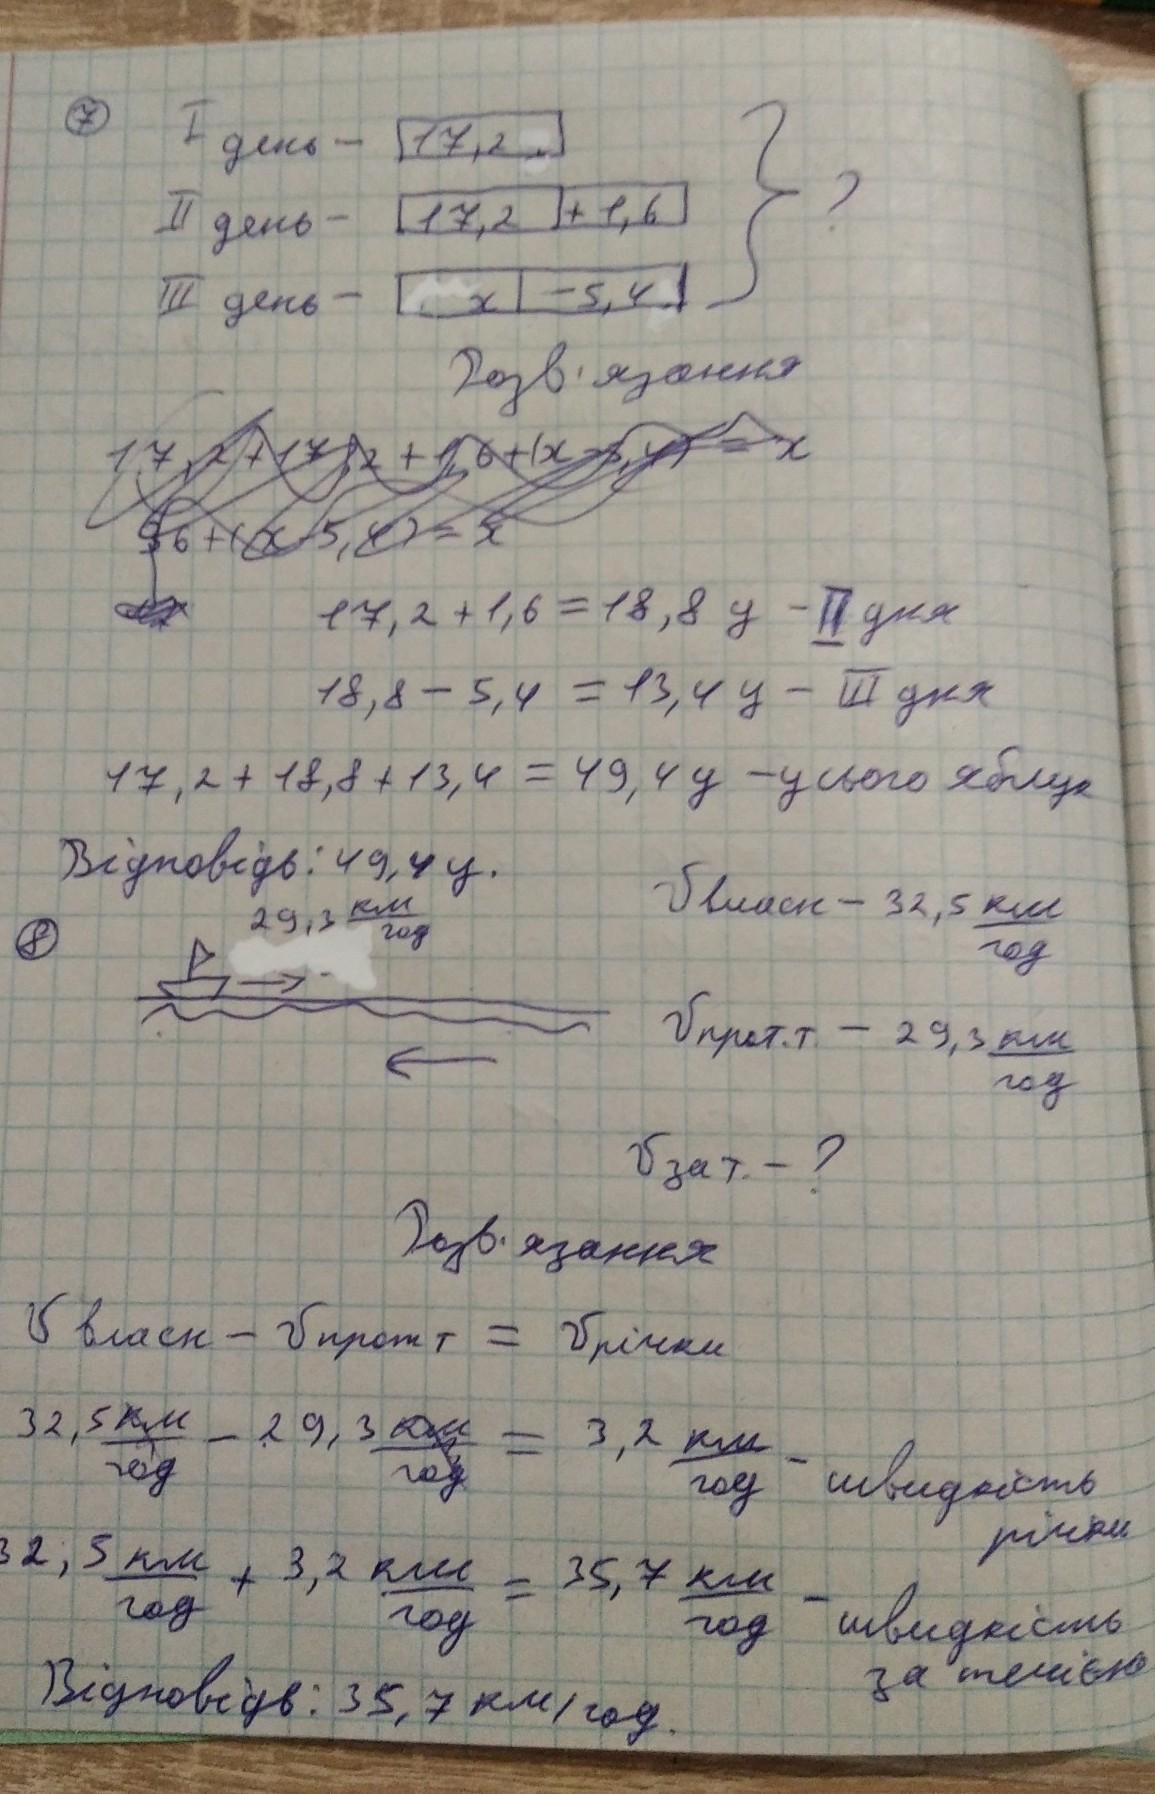 7
I день – 17,2
II день – 17,2 + 1,6
III день – х – 5,4
?
Розв'язання
17,2+17,2+1,6+(х-5,4) = х
36+(х-5,4)=х
17,2+1,6=18,8 ц – II дня
18,8 – 5,4 = 13,4 ц – III дня
17,2+18,8+13,4=49,4 ц – усього яблук
Відповідь: 49,4 ц.
8
29,3 км/год
V власн – 32,5 км/год
V прот.т. – 29,3 км/год
V за т. – ?
Розв'язання
V власн – V прот т = V річки
32,5 км/год – 29,3 км/год = 3,2 км/год – швидкість
річки
32,5 км/год + 3,2 км/год = 35,7 км/год – швидкість
за течією
Відповідь: 35,7 км/год.